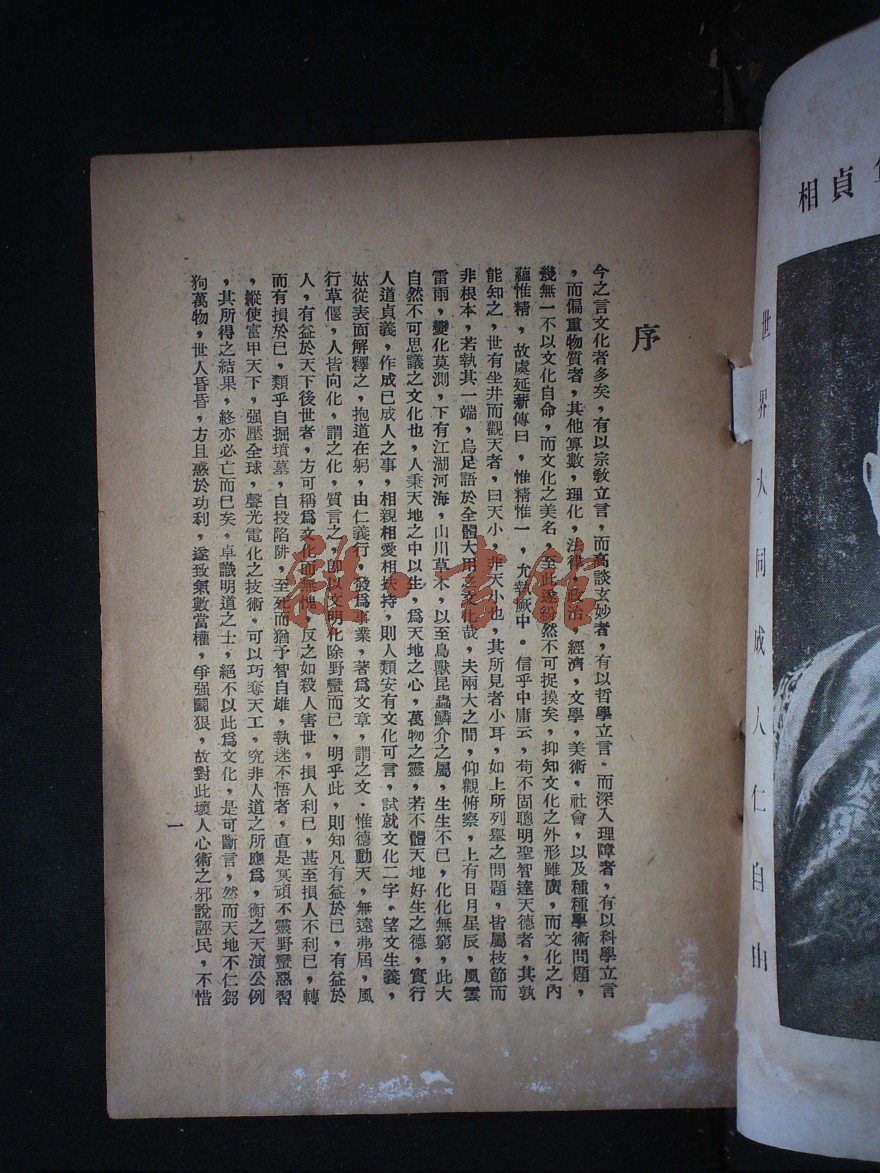 序
今之言文化者多矣，有以宗敎立言，而高談玄妙者，有以哲學立言，而深入理障者，有以科學立言
，而偏重物質者，其他算數，理化，法律，政治，經濟，文學，美術，社會，以及種種學術問題，
幾無一不以文化自命，而文化之美名，至此遂紛然不可捉摸矣，抑知文化之外形雖廣，而文化之內
蘊惟精，故虞廷薪傳曰，惟精惟一，允執厥中。信乎中庸云，苟不固聰明聖智達天德者，其孰
能知之，世有坐井而觀天者，曰天小，非天小也，其所見者小耳，如上所列舉之問題，皆屬枝節而
非根本，若執其一端，烏足語於全體大用之文化哉，夫兩大之間，仰觀俯察，上有日月星辰，風雲
雷雨，變化莫測，下有江湖河海，山川草木，以至鳥獸昆蟲鱗介之屬，生生不已，化化無窮，此大
自然不可思議之文化也，人秉天地之中以生，爲天地之心，萬物之靈，若不體天地好生之德，實行
人道貞義，作成已成人之事，相親相愛相扶持，則人類安有文化可言，試就文化二字。望文生義，
姑從表面解釋之，抱道在躬，由仁義行，發爲事業，著爲文章，謂之文。惟德動天，無遠弗屆，風
行草偃，人皆向化，謂之化，質言之，卽以文明化除野蠻而已，明乎此，則知凡有益於已，有益於
人，有益於天下後世者，方可稱爲文化而無愧，反之如殺人害世，損人利已，甚至損人不利已，轉
而有損於已，類乎自掘墳墓，自投陷阱，至死而猶予智自雄，執迷不悟者，直是冥頑不靈野蠻惡習
，縱使富甲天下，强壓全球，聲光電化之技術，可以巧奪天工，究非人道之所應爲，衡之天演公例
，其所得之結果，終亦必亡而已矣。卓識明道之士，絕不以此爲文化，是可斷言，然而天地不仁芻
狗萬物，世人昏昏，方且惑於功利，遂致氣數當權，爭强鬭狠，故對此壞人心術之邪說誣民，不惜
一
貞相
世界大同成人仁自山
雜·書館